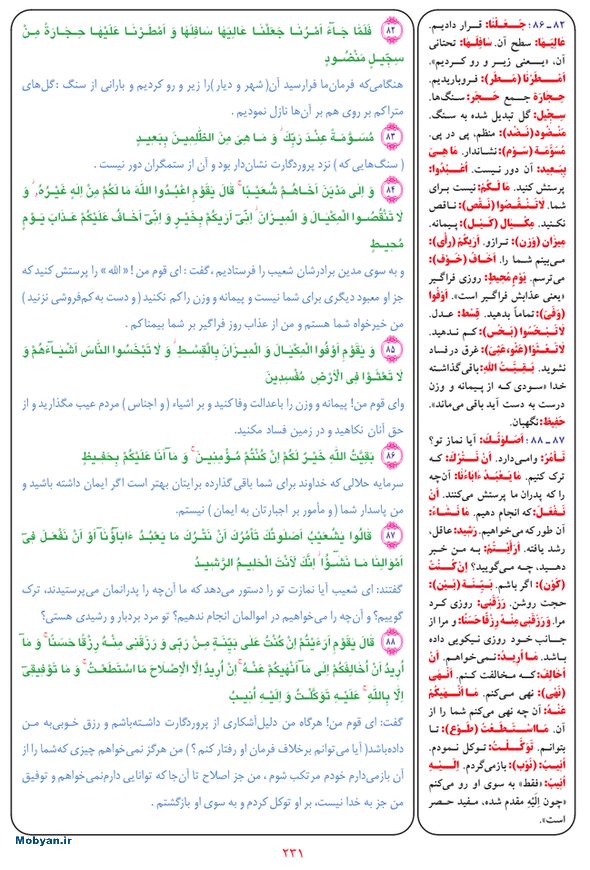 ۸۲ ـ ۸۶ : جَـعَـلْنَا: قـرار دادیـم.
عَالِيَـهَا: سطح آن. سَافِلَـهَا: تحتانی
آن، «یـعنی زیر و رو کردیم».
اَمْـطَـرْنَا (مَـطَر): فروباریدیم.
حِجَارَة جـمع حَـجَر: سنگ‌ها.
سِجِّيْل: گل تبدیل شده به سنگ.
مَنْضُود(نَـضْد): منظم، پی در پی.
مُسَوَّمَة (سَوْم): نشاندار. مَا هِیَ
بِبَعِيد: آن دور نیست. اُعْـبُدُوا:
پرستش کنید. مَا لَـكُمْ: نیست برای
شما. لَا تَـنْـقُـصُوا (نَقْص): ناقص
نکنید. مِكْـيَال (كَـيْل): پیـمانه.
مِيزَان (وَزن): ترازو. اَرَيكُمْ (رأی):
می‌بینم شما را. اَخَـافُ (خَـوْف):
می‌ترسم. يَوْمٍ مُحِيطٍ: روزی فراگیر
«یعنی عذابش فراگیر است». اَوْفُوا
(وَفْیَ): تماماً بدهید. قِسْط: عـدل.
لَا تَـبْـخَسُوا (بَـخْس): کم ندهید.
لَا تَعْـثَوْا (عَثْو،عَثْیَ): غرق درفساد
نشوید. بَـقِـيَّتُ اللهِ: باقی‌گذاشته
خدا «سودی که از پیمانه و وزن
درست به دست آید باقی می‌ماند».
حَفِيظ: نگهبان.
۸۷ ـ ۸۸ : اَصَلوٰتُـكَ: آیا نماز تو؟
تَـأْمُرُ: وامی‌دارد. اَنْ نَـتْرُكَ: کـه
ترک کنیم. مَا يَـعْـبُدُ ءَابَاءُنَا: آن‌چه
را که پدران ما پرستش می‌کنند. اَنْ
نَـفْـعَلَ: که انجام دهیم. مَـا نَـشَاءُ:
آن طور که می‌خواهیم. رَشِيد: عاقل،
رشد یافته. اَرَاَيْـتُمْ: به مـن خبـر
دهید، چـه می‌گویید؟ اِنْ كُـنْتُ
(كَوْن): اگر باشم. بَـيِّـنَة (بَـيْن):
حجت روشن. رَزَقَنِی: روزی کـرد
مرا. وَرَزَقَنِی مِنْـهُ رِزْقًا حَسَنًا: و مرا از
جـانب خـود روزی نیکویی داده
باشد. مَا اُرِيـدُ: نمی‌خواهم. اَنْ
اُخَالِفَكُمْ: کـه مـخالفت کـنم. اَنْـهَی
(نَهْی): نهی مـی‌کنم. مَـا اَنْـهَيكُمْ
عَنْـهُ: آن چه نهی می‌کنم شما را از
آن. مَـا اسْـتَـطَـعْتُ (طَـوْع): تـا
بتوانم. تَـوَكَّـلْتُ: توکل نمودم.
اُنِيبُ (نَوْب): بازمی‌گردم. اِلَـيْـهِ
اُنِيبُ: «فقط» به سوی او رو می‌کنم
«چون اِلَيْهِ مقدم شده، مـفید حـصر
است».
۸۲ فَلَمَّا جَـاءَ اَمْـرُنَا جَعَلْنَا عَالِيَهَا سَافِلَهَا وَ اَمْطَرْنَا عَلَيْهَا حِجَارَةً مِـنْ
سِجّيلٍ مَنْضُودٍ
هنگامی‌که فرمان‌ما فرارسید آن( شهر و دیار )را زیر و رو کردیم و بارانی از سنگ : گل‌های
متراکم بر روی هم بر آن‌ها نازل نمودیم .
۸۳ مُسَوَّمَةً عِنْدَ رَبِّكَ وَ مَا هِیَ مِنَ الظّٰلِمِينَ بِبَعِيدٍ
( سنگ‌هایی که ) نزد پروردگارت نشان‌دار بود و آن از ستمگران دور نیست .
۸۴ وَ اِلَی مَدْيَنَ اَخَاهُـمْ شُعَيْبًا قَالَ يٰقَوْمِ اعْبُدُوا اللهَ مَا لَكُمْ مِنْ اِلٰهٍ غَيْرُهُ وَ
لَا تَنْقُصُوا الْمِكْيَالَ وَ الْمِيزَانَ اِنّیٓ اَرٰيكُمْ بِخَيْرٍ وَ اِنّیٓ اَخَافُ عَلَيْكُمْ عَذَابَ يَـوْمٍ
مُحِيطٍ
و به سوی مدین برادرشان شعیب را فرستادیم ، گفت : ای قوم من ! « الله » را پرستش کنید که
جز او معبود دیگری برای شما نیست و پیمانه و وزن راکم نکنید ( و دست به‌کم‌فروشی نزنید )
من خیرخواه شما هستم و من از عذاب روز فراگیر بر شما بیمناکم .
۸۵ وَ يٰقَوْمِ اَوْفُوا الْمِكْيَالَ وَ الْمِيزَانَ بِالْقِسْطِ وَ لَا تَبْخَسُوا النَّاسَ اَشْيَاءَهُمْ وَ
لَا تَعْثَوْا فِی الْاَرْضِ مُفْسِدِينَ
وای قوم من! پیمانه و وزن را باعدالت وفا کنید و بر اشیاء ( و اجناس ) مردم عیب مگذارید و از
حق آنان نکاهید و در زمین فساد مکنید.
۸۶ بَقِيَّتُ اللهِ خَيْرٌ لَكُمْ اِنْ كُنْتُمْ مُـؤْمِنِيـنَ وَ مَآ اَنَا عَلَيْكُمْ بِحَفِيظٍ
سرمایه حلالی که خداوند برای شما باقی گذارده برایتان بهتر است اگر ایمان داشته باشید و
من پاسدار شما ( و مأمور بر اجبارتان به ایمان ) نیستم.
۸۷ قَالُوا يٰشُعَيْبُ اَصَلٰوتُـكَ تَأْمُرُكَ اَنْ نَتْـرُكَ مَا يَعْبُدُ ءَابَاؤُنَآ اَوْ اَنْ نَفْعَلَ فِیٓ
اَمْوَالِنَا مَـا نَـشٰٓؤُا اِنَّكَ لَاَنْتَ الْحَلِيـمُ الرَّشِيدُ
گفتند: ای شعیب آیا نمازت تو را دستور می‌دهد که ما آن‌چه را پدرانمان می‌پرستیدند، ترک
گوییم ؟ و آن‌چه را می‌خواهیم در اموالمان انجام ندهیم؟ تو مرد بردبار و رشیدی هستی؟
۸۸ قَالَ يٰقَوْمِ اَرَءَيْتُمْ اِنْ كُنْتُ عَلَی بَيِّنَةٍ مِـنْ رَبّی وَ رَزَقَنِی مِنْـهُ رِزْقًا حَسَنًا وَ مَآ
اُرِيدُ اَنْ اُخَالِفَكُمْ اِلَی مَآ اَنْهٰيكُمْ عَنْهُ اِنْ اُرِيدُ اِلَّا الْاِصْلَاحَ مَا اسْتَطَعْتُ وَ مَا تَوْفِيقِیٓ
اِلَّا بِاللهِ عَلَيْهِ تَوَكَّلْتُ وَ اِلَيْهِ اُنِيبُ
گفت: ای قوم من! هرگاه من دلیل‌آشکاری از پروردگارت داشته‌باشم و رزق خوبی‌به مـن
داده‌باشد( آیا می‌توانم برخلاف فرمان او رفتار کنم ؟ ) من هرگز نمی‌خواهم چیزی که‌شما را از
آن بازمی‌دارم خودم مرتکب شوم ، من جز اصلاح تا آن‌جا که توانایی دارم‌نمی‌خواهم و توفیق
من جز به خدا نیست، بر او توکل کردم و به سوی او بازگشتم .
Mobyan.ir
۲۳۱